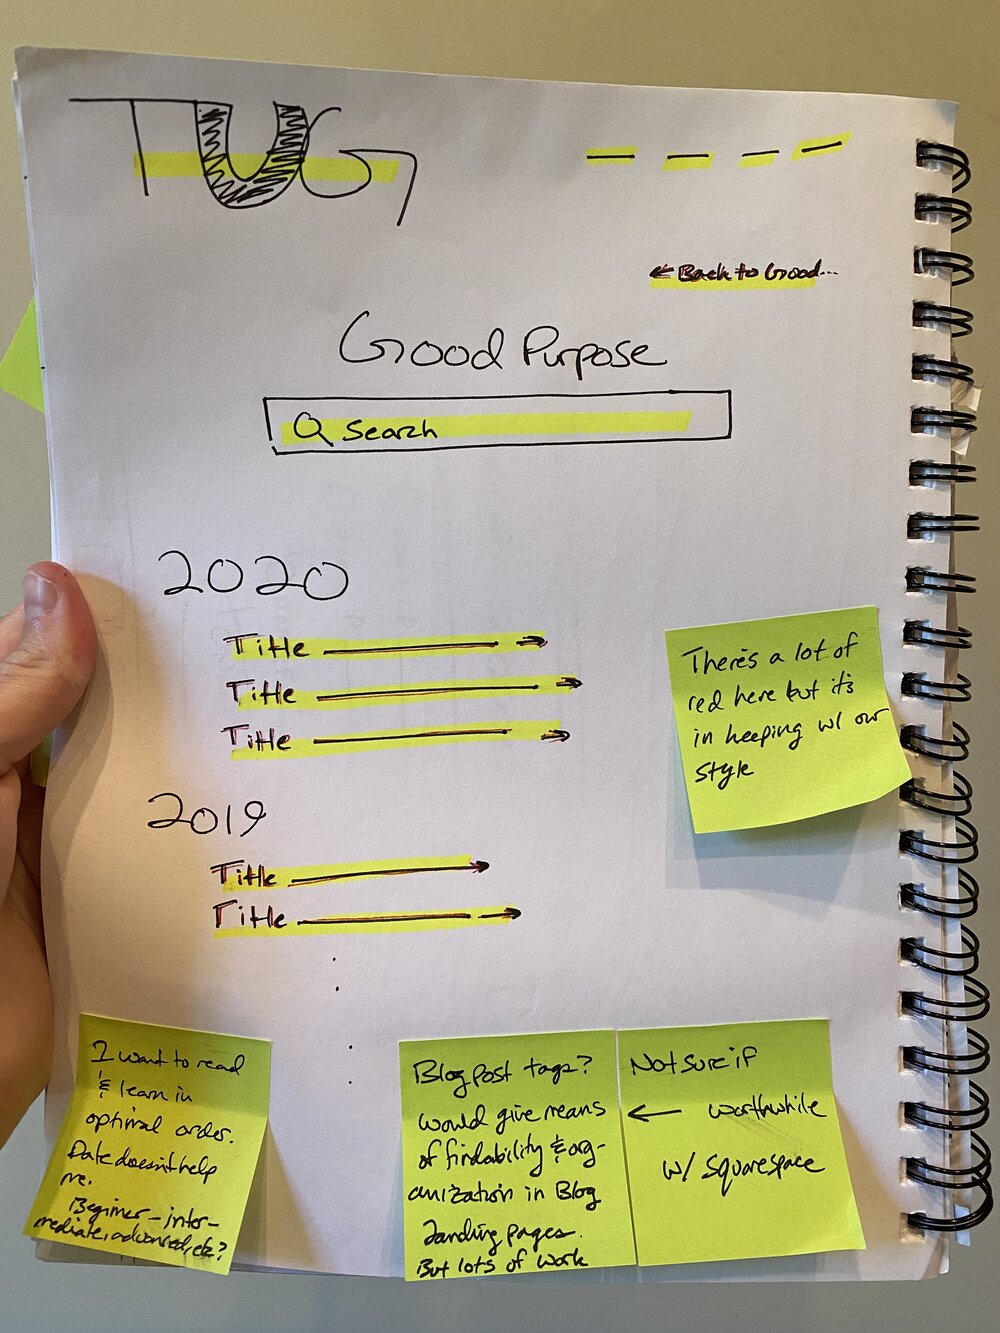 TUG
← Back to Good...
Good Purpose
Search
2020
Title
Title
Title
2019
Title
Title
There's a lot of
red here but it's
in keeping w/ our
style
I want to read
& learn in
optimal order.
Date doesn't help
me.
Beginner - inter-
mediate, advanced, etc?
Blog post tags?
Would give means
of findability & org-
anization in Blog
Landing pages.
But lots of work
Not sure if
← worthwhile
w/ squarespace